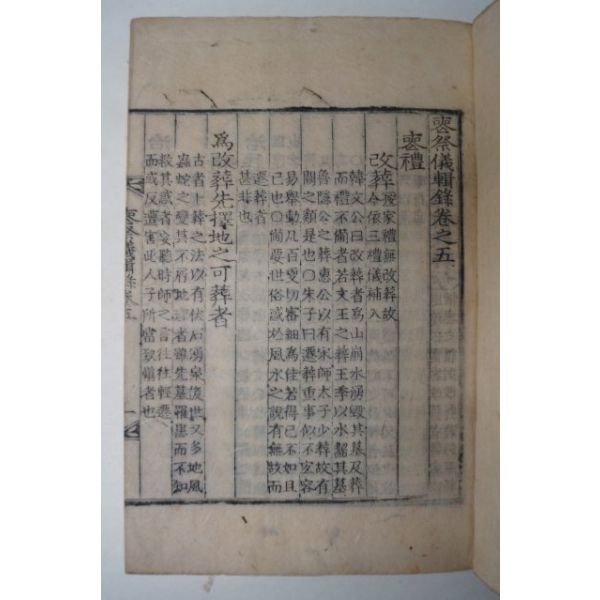 䘮祭儀輯錄卷之五
䘮禮
改葬 按家禮無改葬故
今依三禮儀補入
○韓文公曰改葬者爲山崩水湧毀其墓及葬
而禮不備者若文王之葬王季以水齧其墓
魯隱公之葬惠公以有宋師太子少葬故有
闕之類是也○朱子曰遷葬重事似不宜容
易舉動凡百更切審細爲佳若得已不如且
已也○備要世俗惑於風水之說有無故而
遷葬者
甚非也
爲改葬先擇地之可葬者
古者卜葬之法以有伏石湧泉後世又多地風
蟲蛇之變其不屑地者雖先墓罹患而不知
救其惑者聽時師之言往往輕遷
而或反遭害此人子所當致者也
䘮祭儀輯錄卷五
一